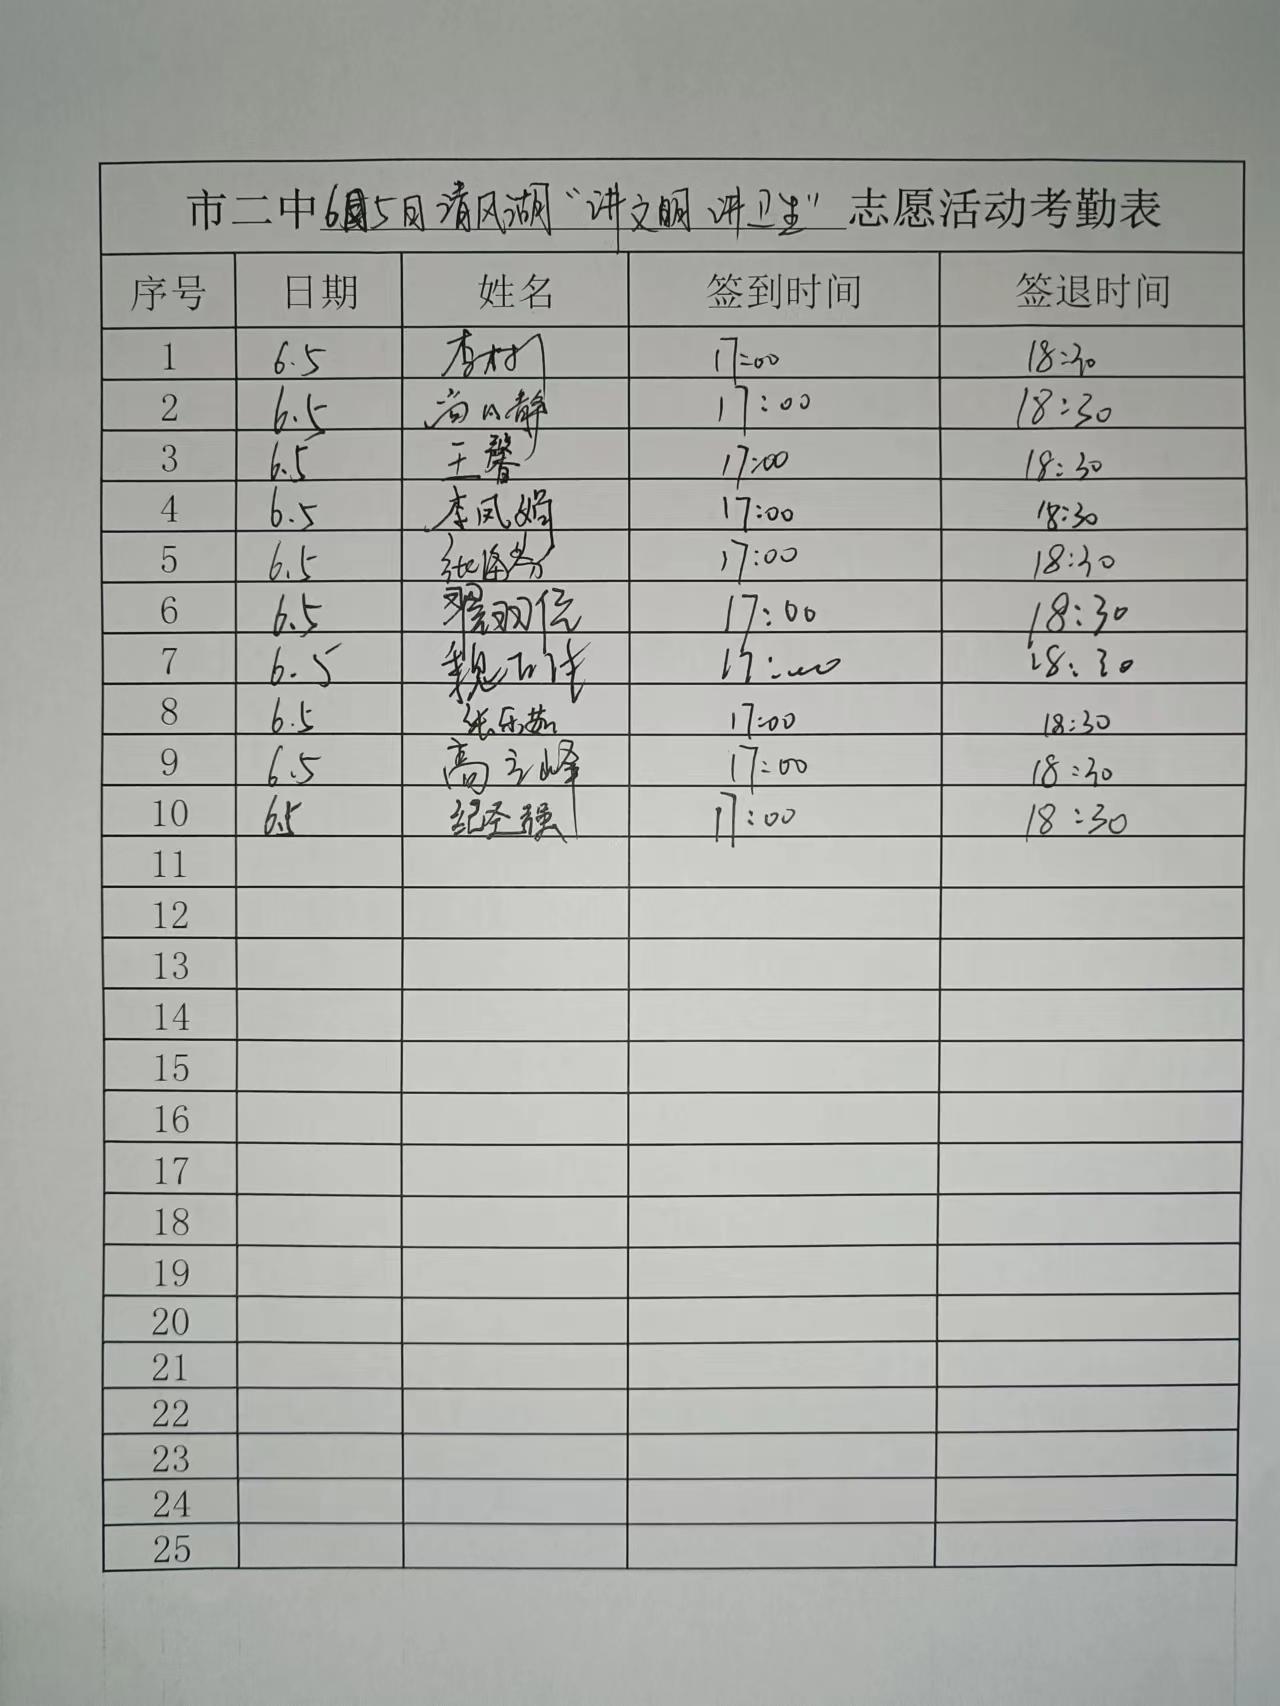 市二中6月5日清风湖“讲文明 讲卫生”志愿活动考勤表
序号 日期 姓名 签到时间 签退时间
1 6.5 李村 17:00 18:30
2 6.5 17:00 18:30
3 6.5 王馨 17:00 18:30
4 6.5 李凤娟 17:00 18:30
5 6.5 张海芬 17:00 18:30
6 6.5 翟羽佳 17:00 18:30
7 6.5 魏 17:00 18:30
8 6.5 张乐茹 17:00 18:30
9 6.5 高立峰 17:00 18:30
10 6.5 纪圣强 17:00 18:30
11
12
13
14
15
16
17
18
19
20
21
22
23
24
25